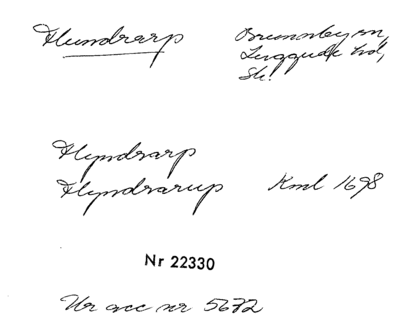 Flundrarp
Brunnsby sn,
Luggude hd,
Sk.
Flyndrarp
Flyndrarup Kml 1698
Nr 22330
Ur acc nr 5672